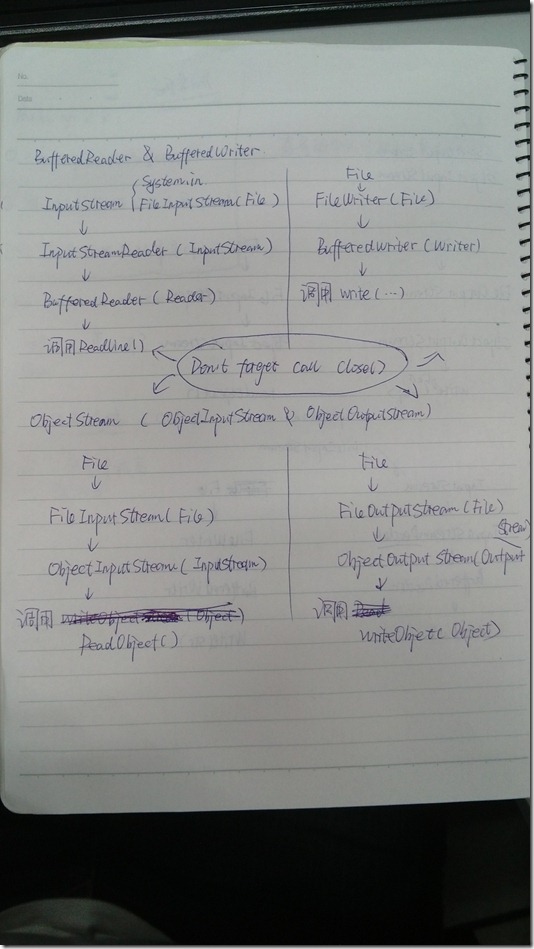 No.
Date
BufferedReader & BufferedWriter.
System.in
InputStream { FileInputStream (File)
↓
InputStreamReader (InputStream)
↓
BufferedReader (Reader)
↓
调用 ReadLine()
File
↓
FileWriter (File)
↓
BufferedWriter (Writer)
↓
调用 write (...)
Don't forget call close()
ObjectStream ( ObjectInputStream & ObjectOutputStream)
File
↓
FileInputStream (File)
↓
ObjectInputStream (InputStream)
↓
调用 writeObject (Object)
ReadObject()
File
↓
FileOutputStream (File)
↓
ObjectOutputStream (Output
Stream)
↓
调用 Read
writeObjet (Object)